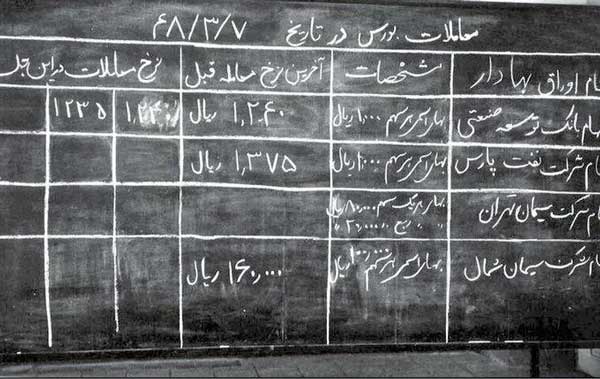 معاملات بورس در تاریخ ۶۸/۳/۷
نام اوراق بهادار مشخصات آخرین نرخ معامله قبل نرخ معاملات در این جل
هام بانک توسعه صنعتی بهای اسمی هر سهم ۱,۰۰۰ ریال ۱,۲۶۰ ریال ۱,۲۴۰ ۱۲۳۵
هام شرکت نفت پارس بهای اسمی هر سهم ۱,۰۰۰ ریال ۱,۳۷۵ ریال
هام شرکت سیمان تهران بهای هر یک سهم ۸۰,۰۰۰ ریال
هام شرکت سیمان شمال بهای اسمی هر سهم ریال ۱۶۰,۰۰۰ ریال